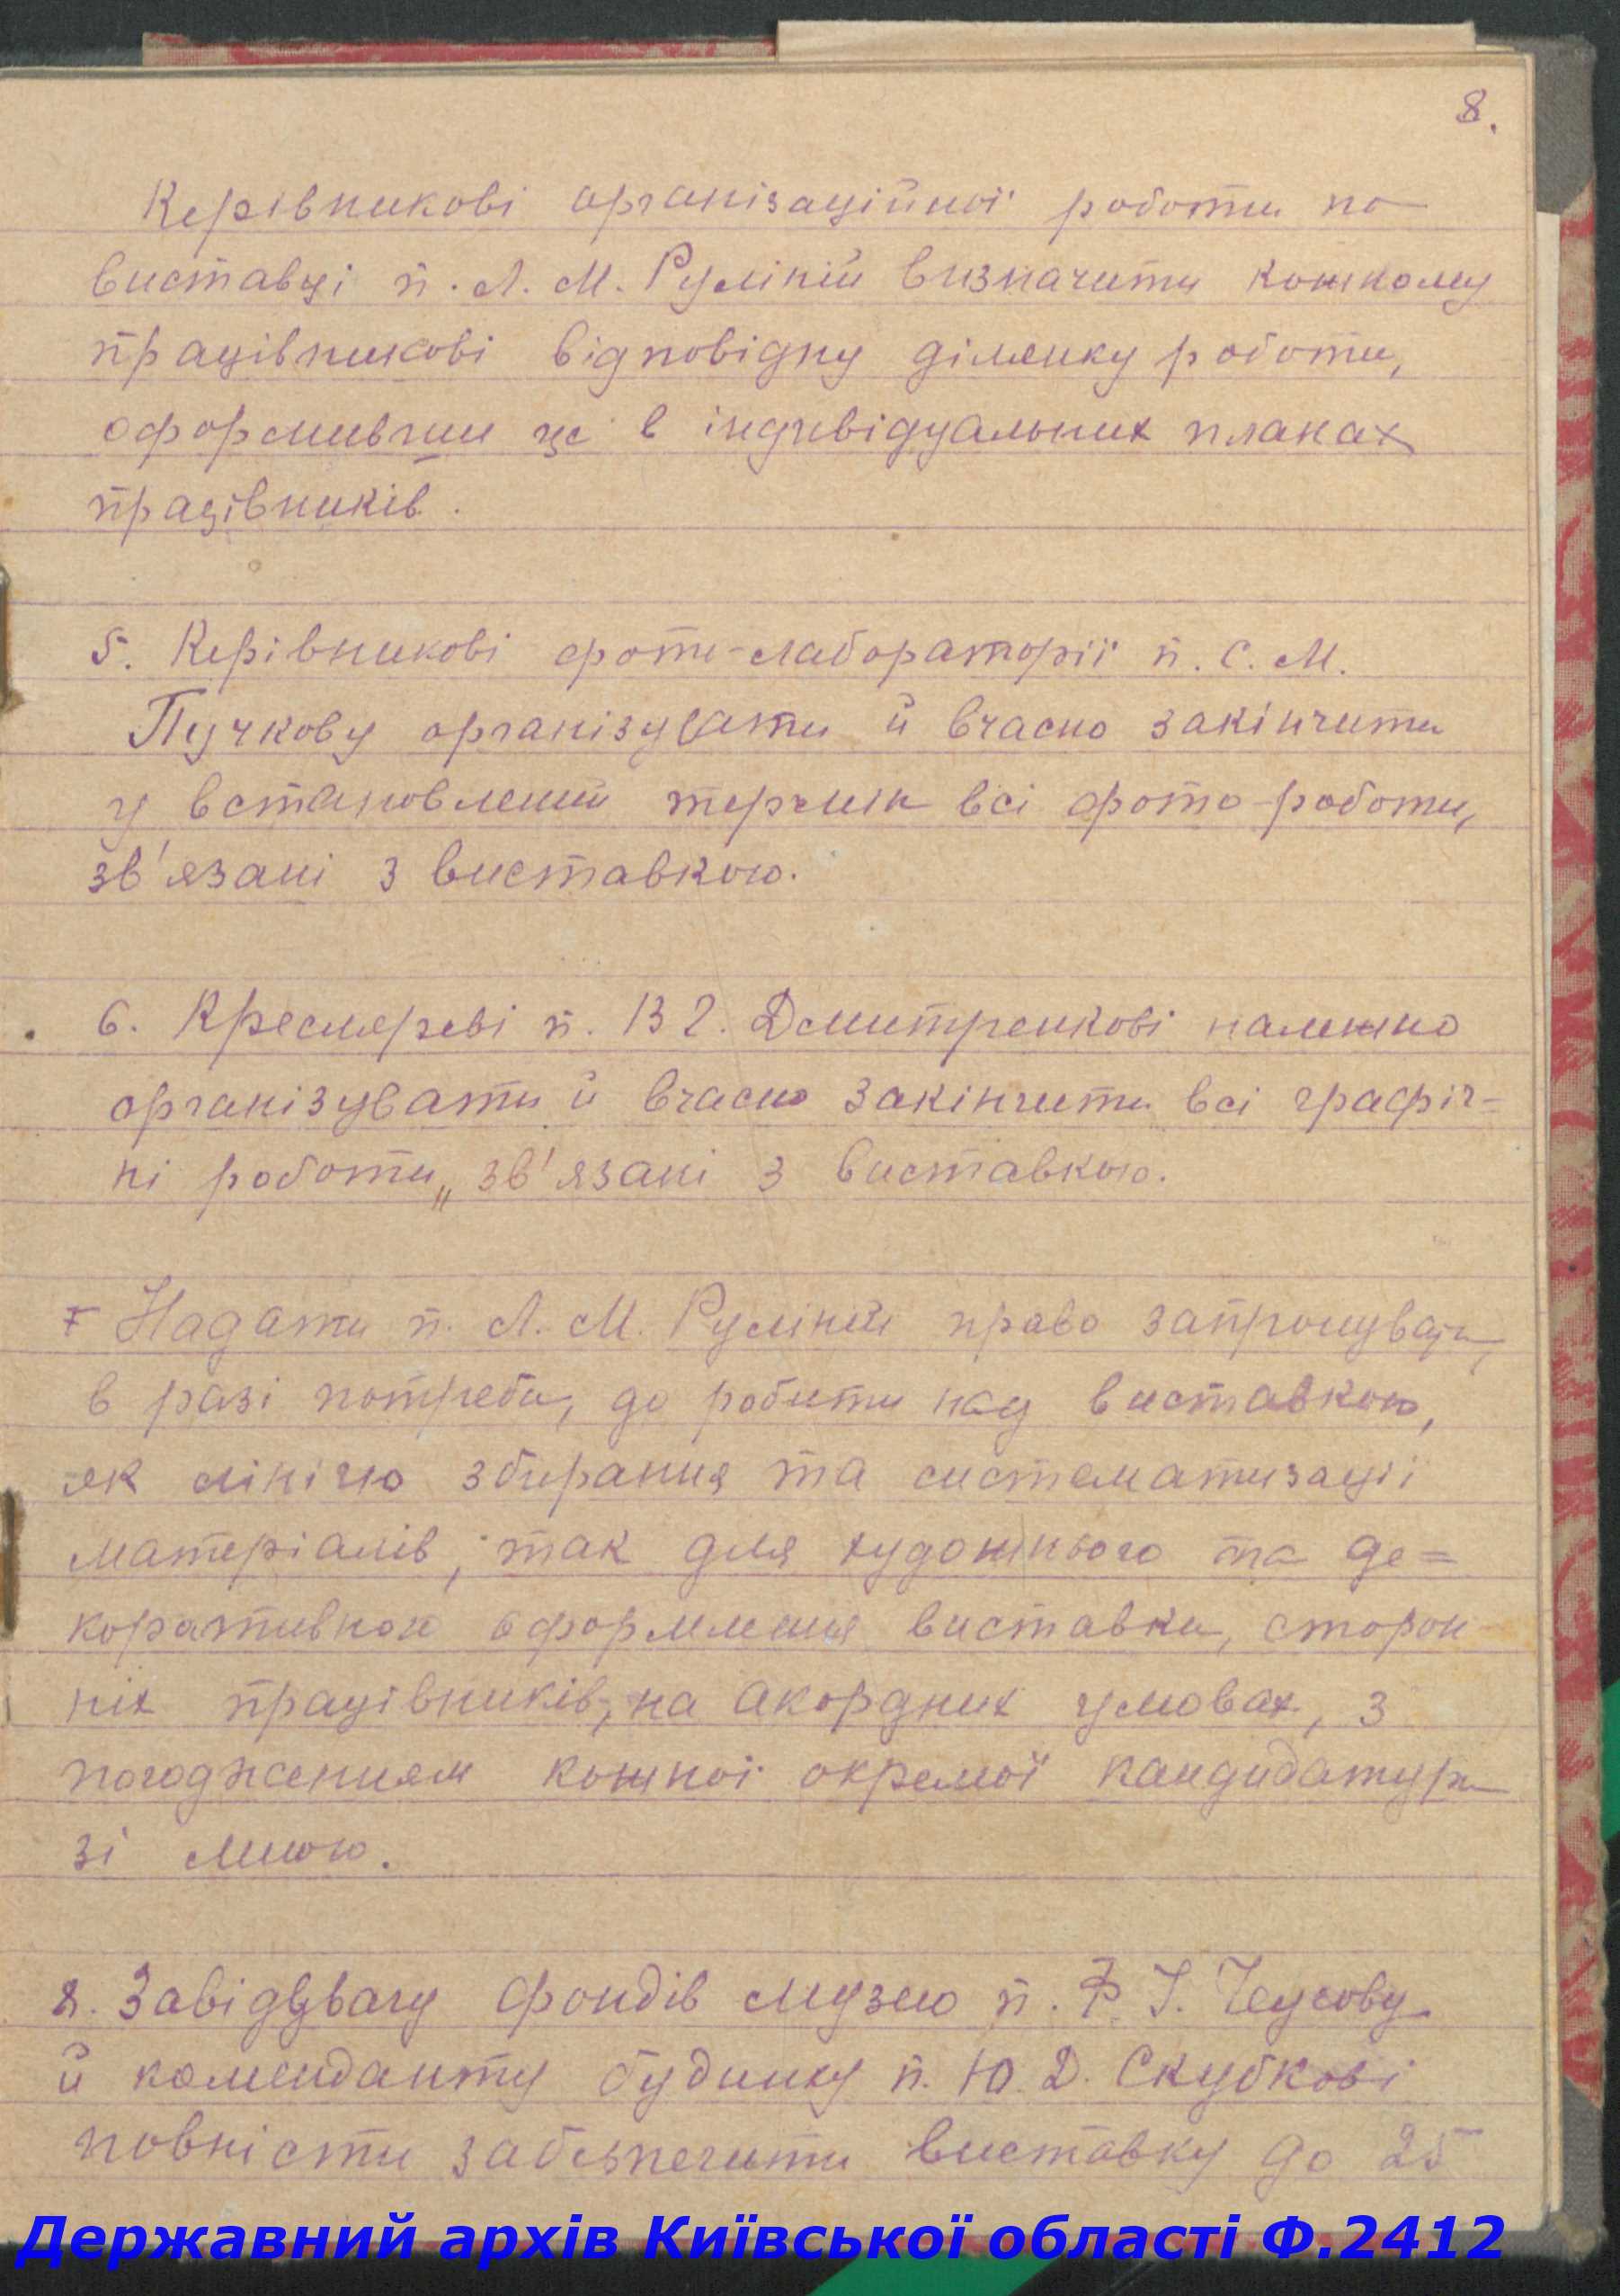 8.
Керівникові організаційної роботи по
виставці п. Л. М. Руліній визначити кожному
працівникові відповідну ділянку роботи,
оформивши це в індивідуальних планах
працівників.
5. Керівникові фото-лабораторії п. С. М.
Пучкову організувати й вчасно закінчити
у встановлений термін всі фото-роботи,
зв'язані з виставкою.
6. Кресляреві п. В Г. Дмитренкові належно
організувати й вчасно закінчити всі графіч=
ні роботи, зв'язані з виставкою.
7 Надати п. Л. М. Руліній право запрошувати,
в разі потреби, до роботи над виставкою,
як лінією збирання та систематизації
матеріалів, так для художнього та де=
коративного оформлення виставки, сторон-
ніх працівників, на акордних умовах, з
погодженням кожної окремої кандидатури
зі мною.
8. Завідувачу фондів музею п. Ф. І. Чеусову
й коменданту будинку п. Ю. Д. Скубкові
повністи забезпечити виставку до 25
Державний архів Київської області Ф.2412